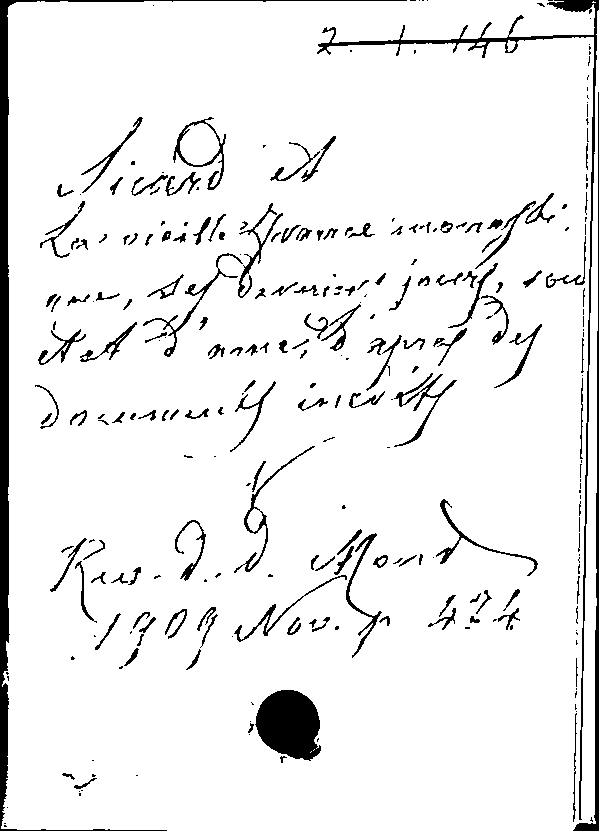 2. 1. 146
Sicard et
La vieille France monasti.
que, ses derniers jours, son
état d'ame, d'après des
documents inédits
Rev. d. d. Mond
1909 Nov. p 424